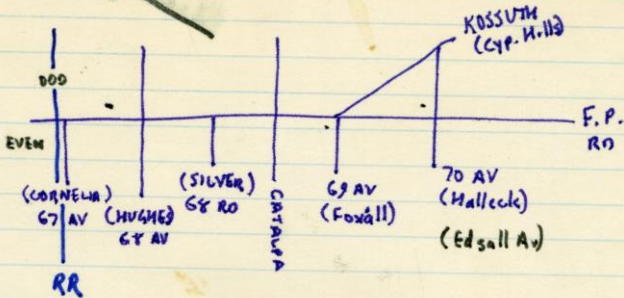 KOSSUTH
(Cyp. Hills)
ODD
EVEN
F.P.
RD
(CORNELIA)
67 AV
(HUGHES)
68 AV
(SILVER)
68 RD
CATALPA
69 AV
(Foxall)
70 AV
(Halleck)
(Edsall Av)
RR